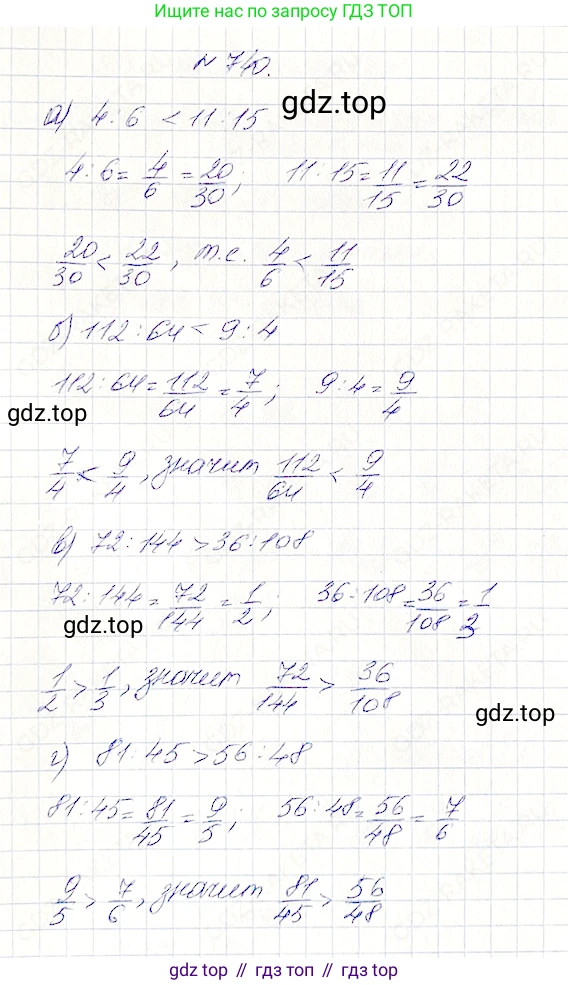 Ищите нас по запросу ГДЗ ТОП
N 740.
а) 4:6 < 11:15
gdz.top
4:6 = 4/6 = 20/30; 11:15 = 11/15 = 22/30
20/30 < 22/30, т.е. 4/6 < 11/15
б) 112:64 < 9:4
112:64 = 112/64 = 7/4; 9:4 = 9/4
gdz.top
7/4 < 9/4, значит 112/64 < 9/4
в) 72:144 > 36:108
72:144 = 72/144 = 1/2; 36:108 = 36/108 = 1/3
gdz.top
1/2 > 1/3, значит 72/144 > 36/108
gdz.top
г) 81:45 > 56:48
81:45 = 81/45 = 9/5; 56:48 = 56/48 = 7/6
9/5 > 7/6, значит 81/45 > 56/48
gdz топ // гдз топ // gdz.top